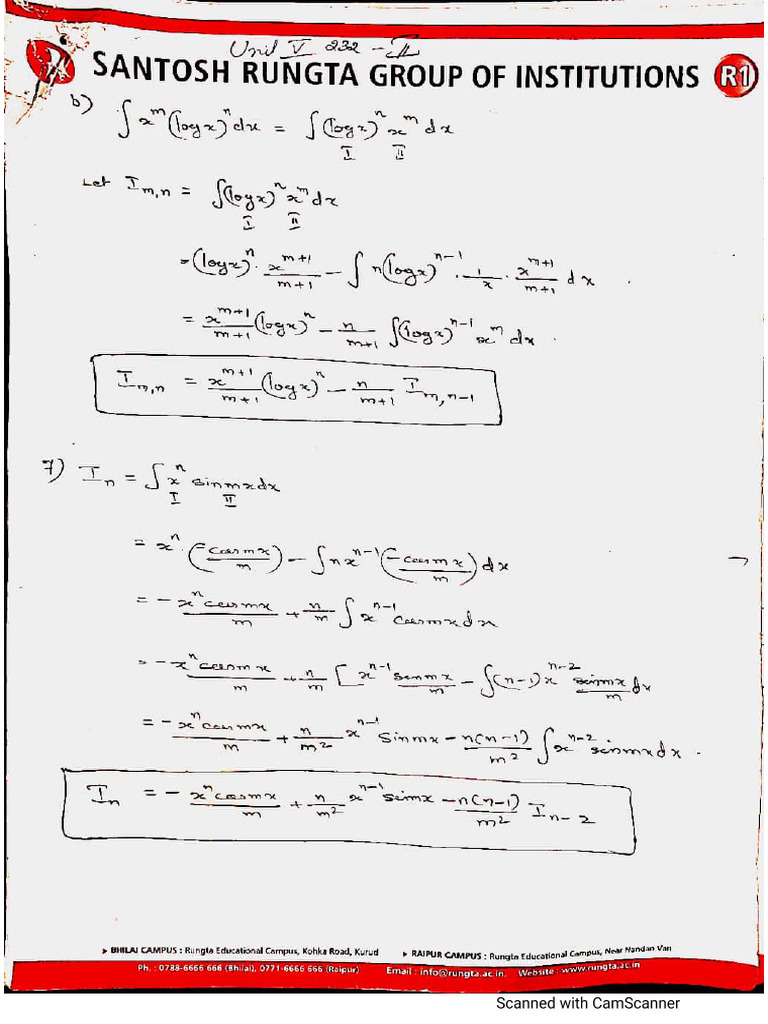 Unit V 232 - II
SANTOSH RUNGTA GROUP OF INSTITUTIONS R1
b) ∫ x^m (log x)^n dx = ∫ (log x)^n x^m dx
I II
Let I_{m,n} = ∫ (log x)^n x^m dx
I II
= (log x)^n · x^{m+1}/(m+1) - ∫ n (log x)^{n-1} · 1/x · x^{m+1}/(m+1) dx .
= x^{m+1}/(m+1) (log x)^n - n/(m+1) ∫ (log x)^{n-1} x^m dx .
I_{m,n} = x^{m+1}/(m+1) (log x)^n - n/(m+1) I_{m,n-1}
7) I_n = ∫ x^n sin mx dx
I II
= x^n · (-cos mx/m) - ∫ n x^{n-1} (-cos mx/m) dx
= - x^n cos mx/m + n/m ∫ x^{n-1} cos mx dx
= - x^n cos mx/m + n/m [ x^{n-1} sin mx/m - ∫ (n-1) x^{n-2} sin mx/m dx
= - x^n cos mx/m + n/m^2 x^{n-1} sin mx - n(n-1)/m^2 ∫ x^{n-2} sin mx dx .
I_n = - x^n cos mx/m + n/m^2 x^{n-1} sin mx - n(n-1)/m^2 I_{n-2}
➤ BHILAI CAMPUS : Rungta Educational Campus, Kohka Road, Kurud ➤ RAIPUR CAMPUS : Rungta Educational Campus, Near Nandan Van
Ph. : 0788-6666 666 (Bhilai), 0771-6666 666 (Raipur) Email : info@rungta.ac.in. Website : www.rungta.ac.in
Scanned with CamScanner